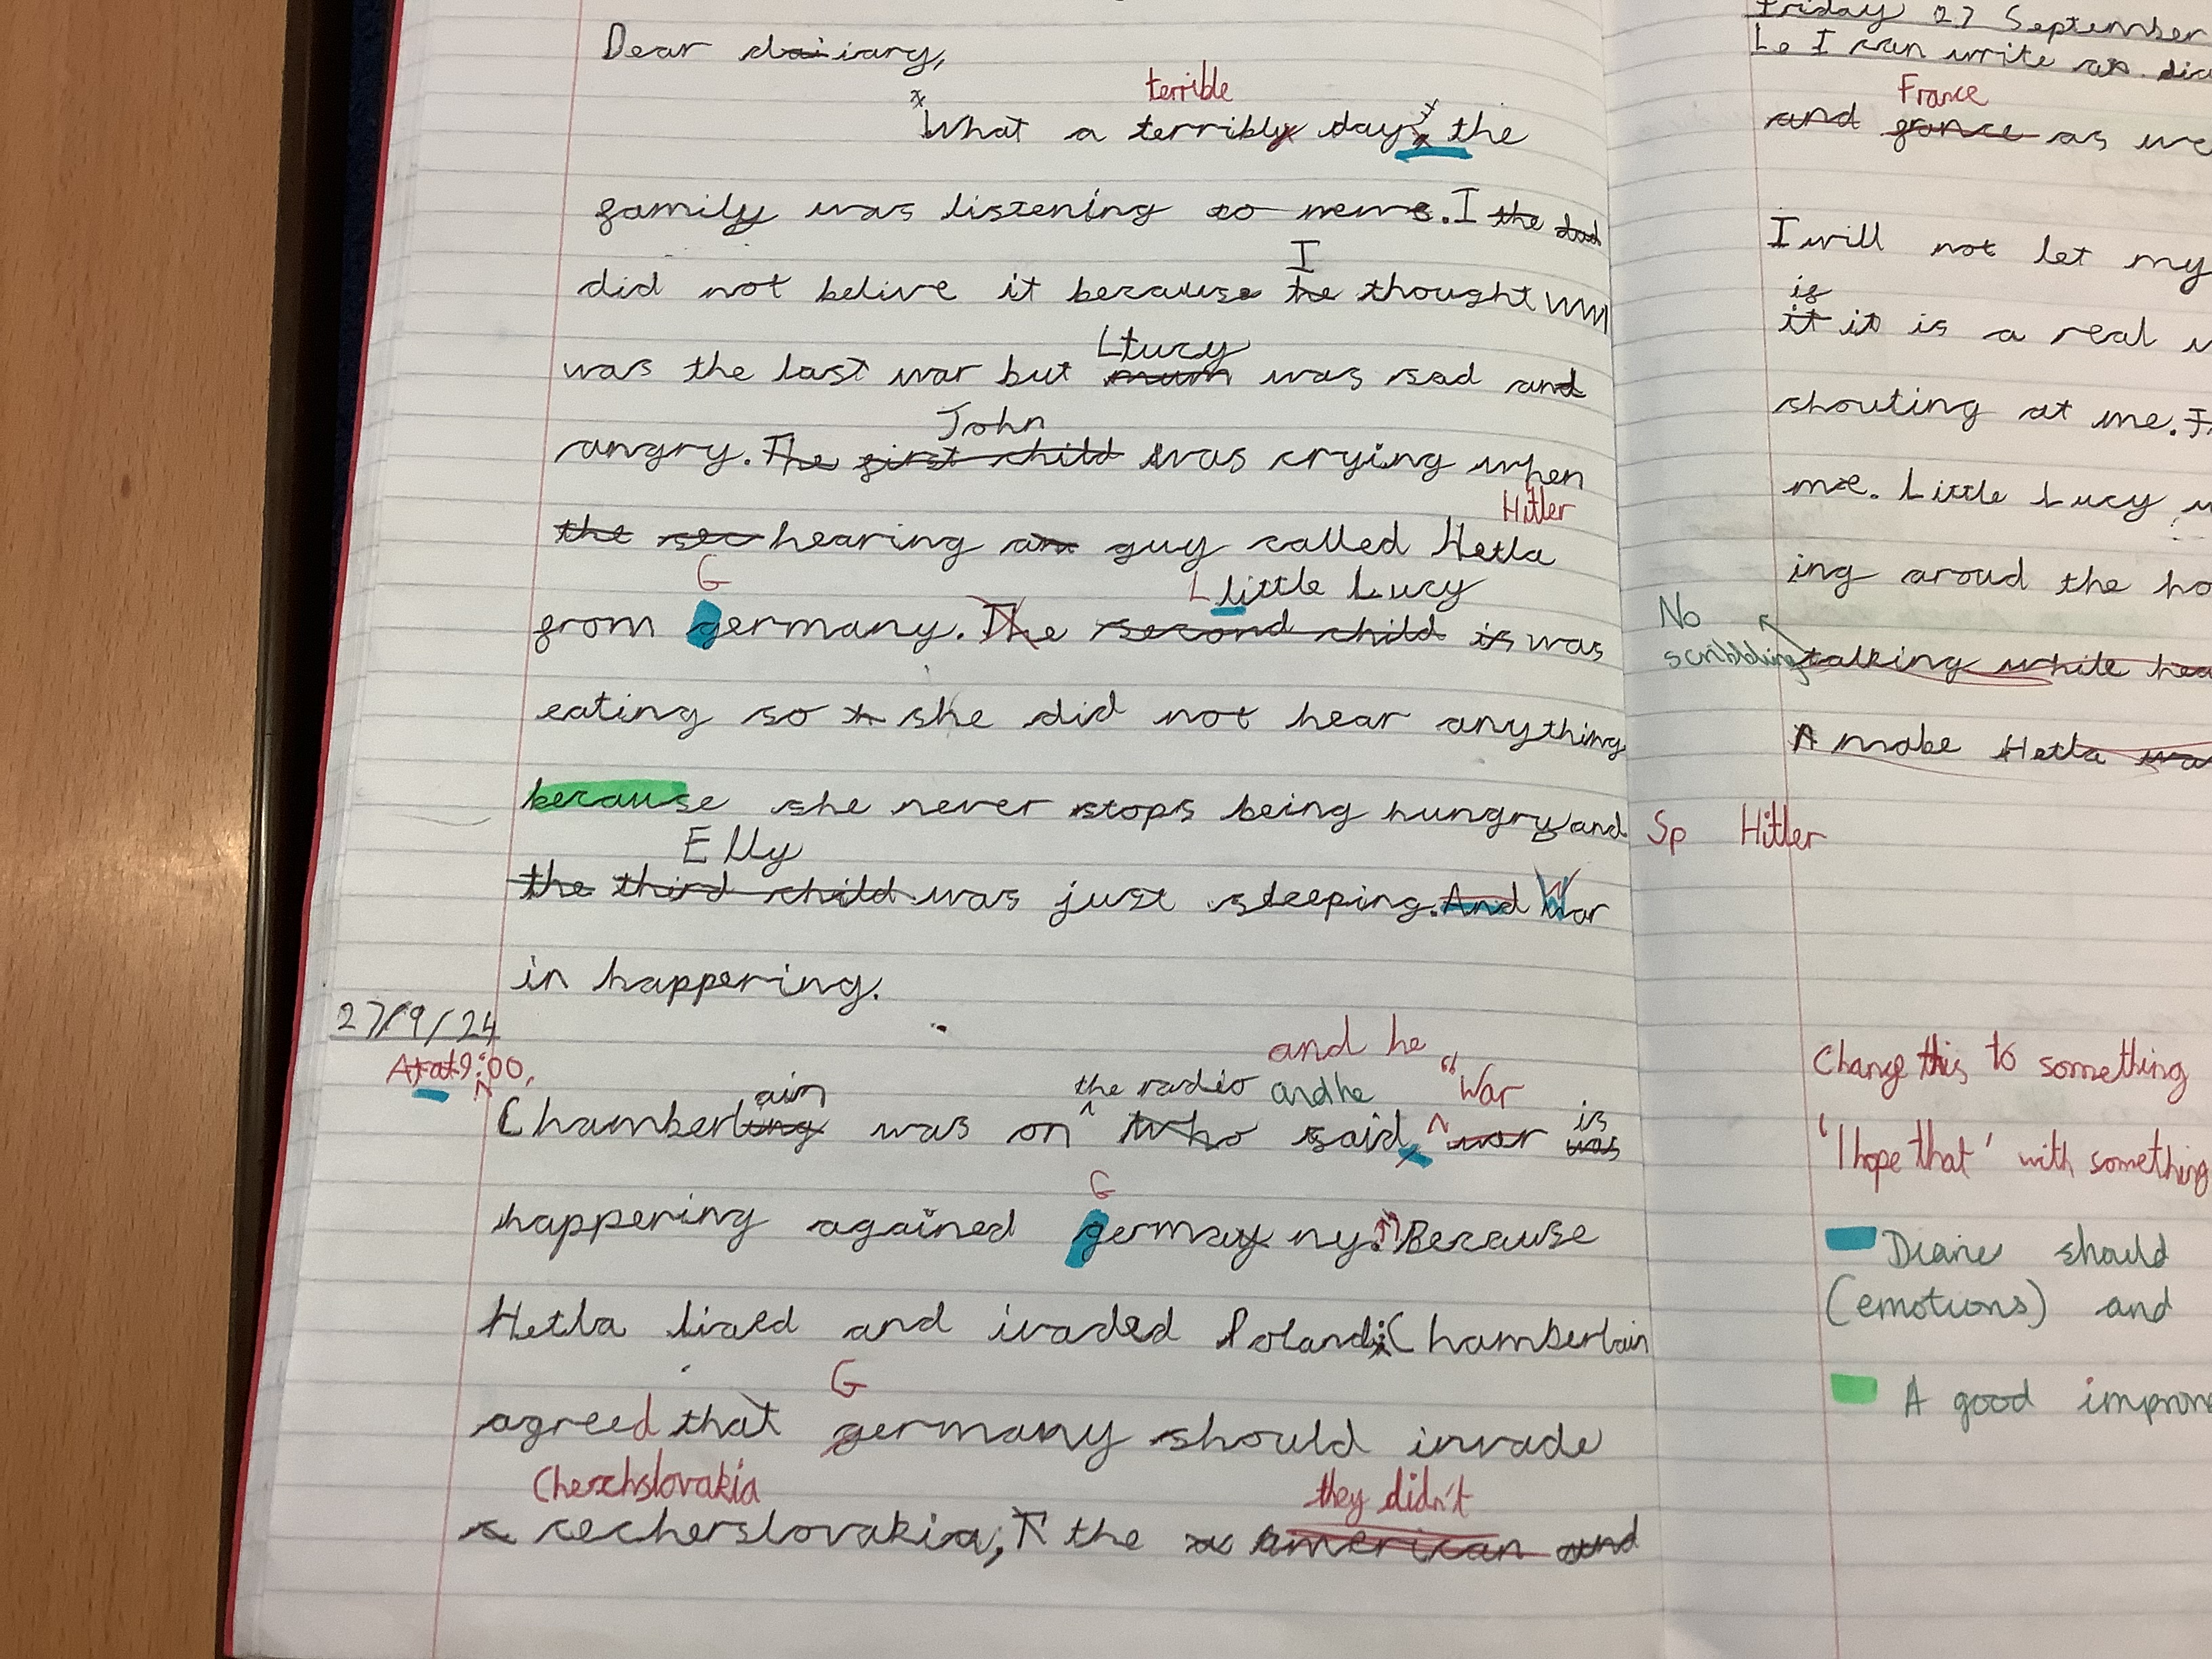 Dear diary,
terrible
What a terribly day. the
family was listening to news. I the dad
I
did not belive it because he thought WW1
Lucy
was the last war but mum was sad and
John
angry. The first child was crying when
Hitler
the sec hearing an guy called Hetla
G L little Lucy
from germany. The second child is was
eating so she did not hear anything
because she never stops being hungry and
Elly
the third child was just sleeping. And War
in happering.
27/9/24
At at 9:00,
and he
ain the radio and he "War is
Chamberling was on who said, war was
G
happering agained germany ny. Because
Hetla lised and ivaded Poland. Chamberlain
G
agreed that germany should invade
Cherchslovakia they didn't
cecherslovakia, the american and
Friday 27 September
Lo I can write a
France
and france as we
I will not let my
if
it it is a real
shouting at me.
me. Little Lucy
ing aroud the
No
scribbling talking while
A make Hetla
Sp Hitler
Change this to something
'I hope that' with something
Diaries should
(emotions) and
A good